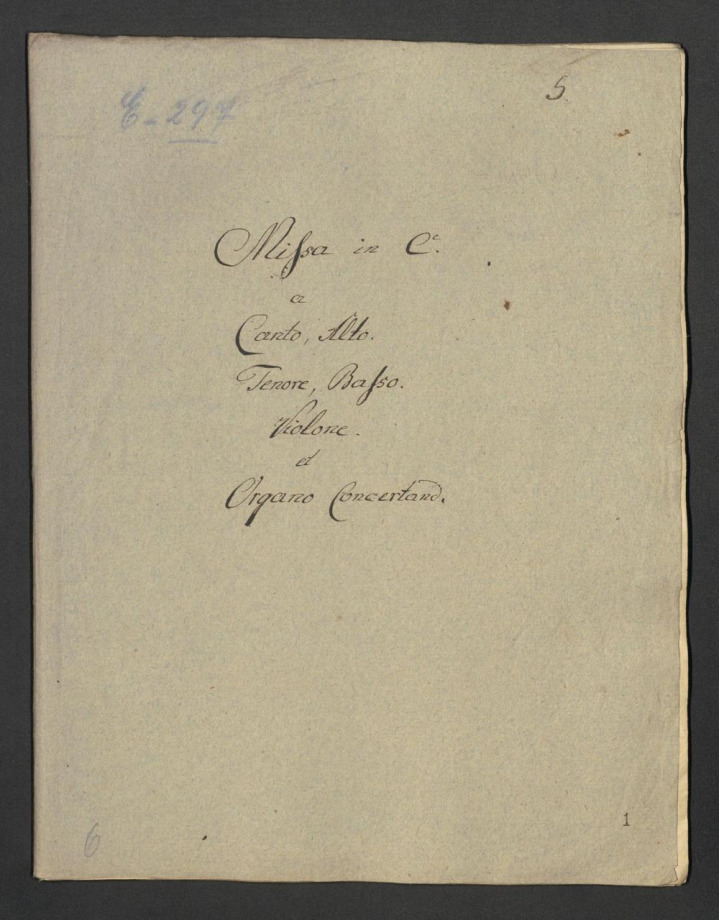 E-297
5.
Missa in C.
a
Canto, Alto.
Tenore, Basso.
Violone.
et
Organo Concertand.
1
6